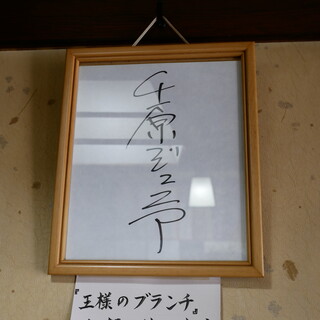 千原ジュニア
『王様のブランチ』